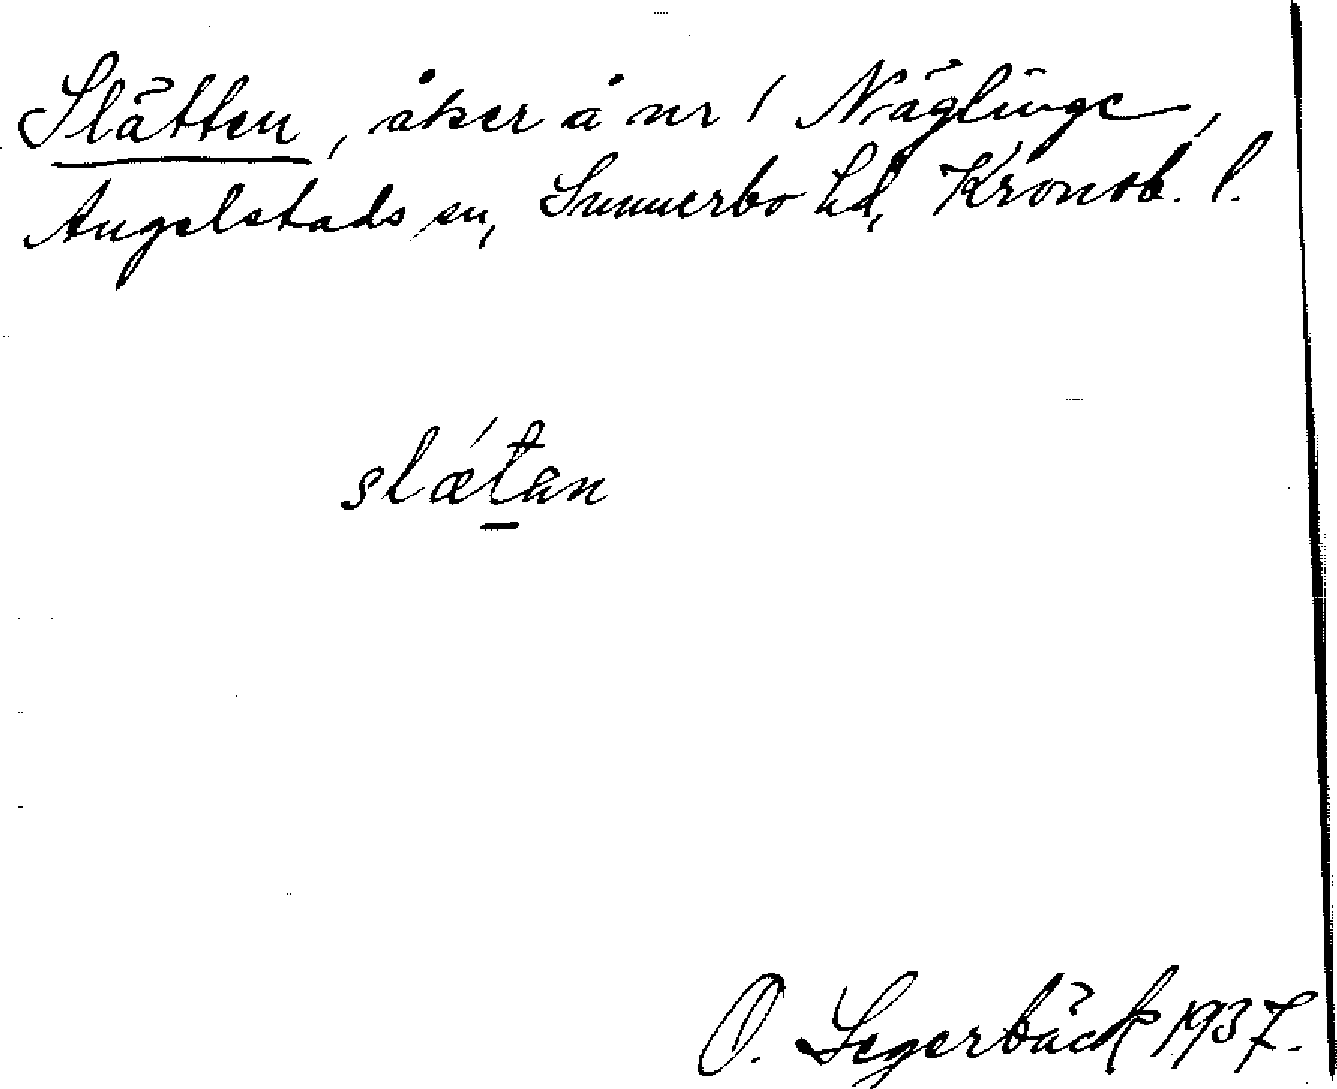 Slätten, åker å nr 1 Näglinge,
Angelstads sn, Sunnerbo hd, Kronob. l.
slǽtan
O. Segerbäck 1937.